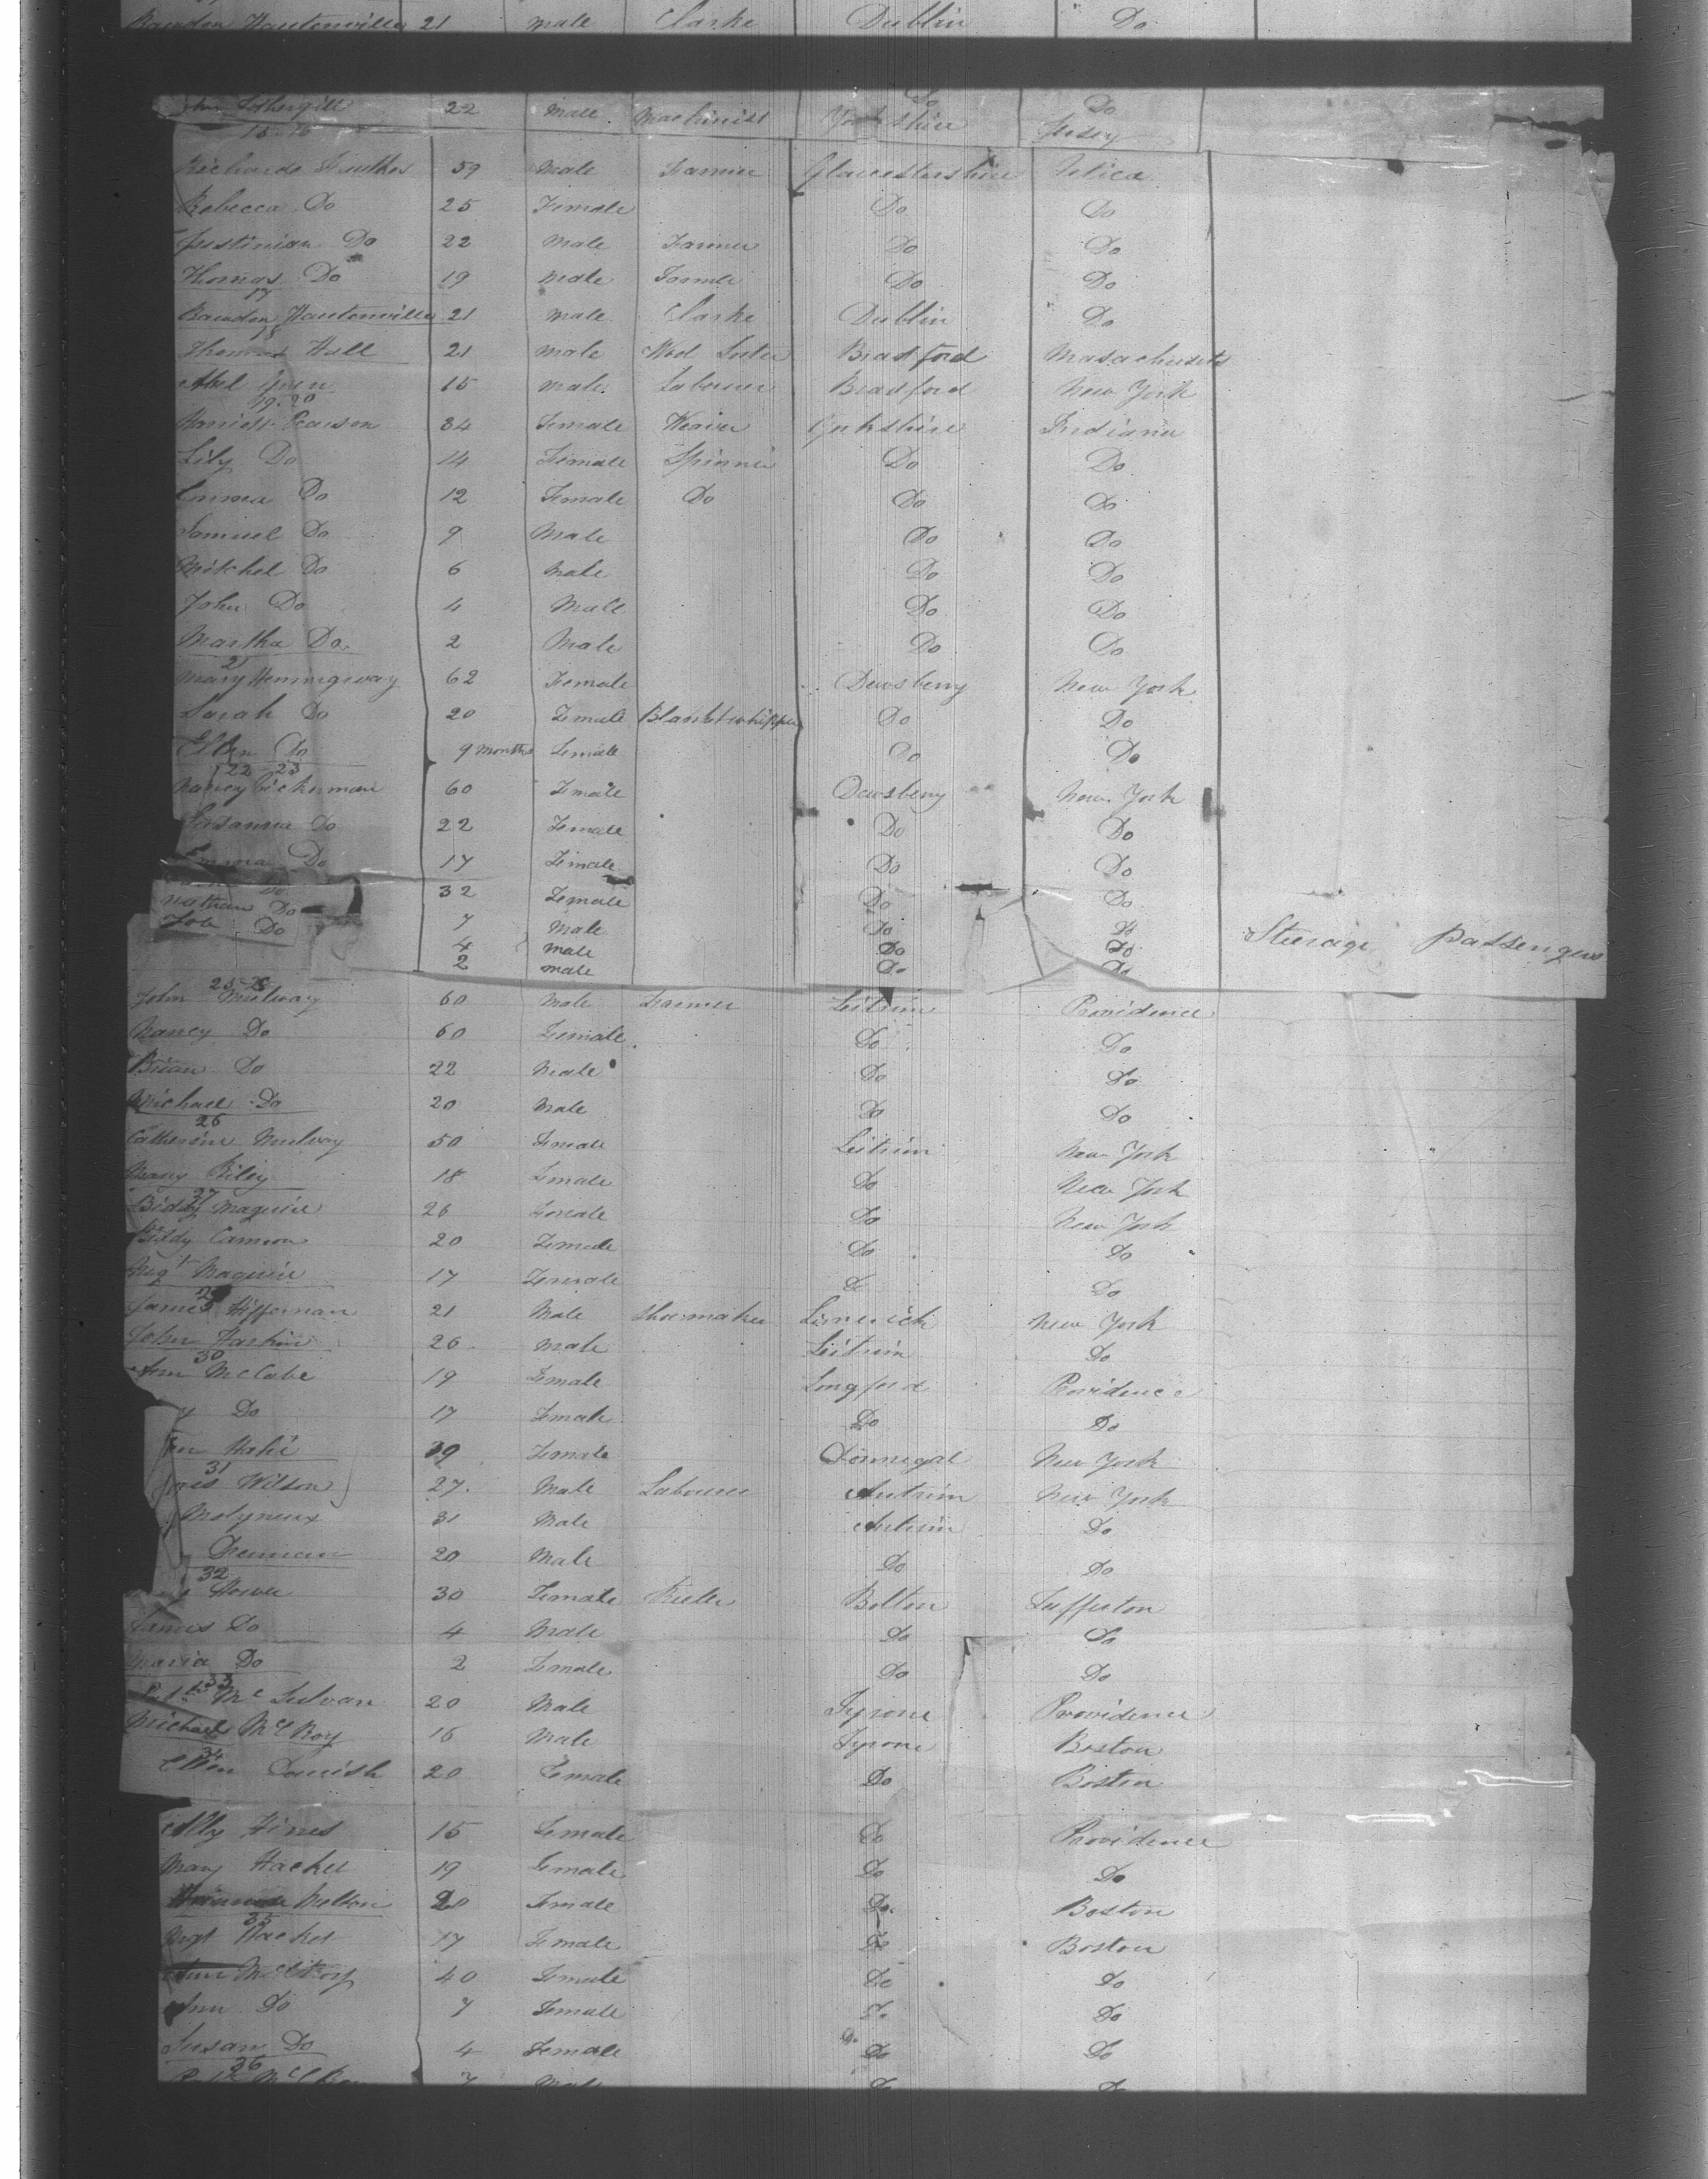 Bawdon Hautenville 21 male Clarke Dublin Do
John Fothergill 22 Male Machinist Do Yorkshire Do Jersey
15-16
Richards 59 Male Farmer Glocestershire Utica
Rebecca Do 25 Female Do Do
Justinian Do 22 Male Farmer Do Do
Thomas Do 19 Male Farmer Do Do
17
Bawdon Hautenville 21 Male Clarke Dublin Do
18
Thomas Hall 21 Male Wool Sorter Bradford Masachusets
Abel Green 15 Male Labourer Bradford New York
19-20
Harriet Pearson 34 Female Weaver Yorkshire Indiana
Lily Do 14 Female Spinner Do Do
Emma Do 12 Female Do Do Do
Samuel Do 9 Male Do Do
Mitchel Do 6 Male Do Do
John Do 4 Male Do Do
Martha Do 2 Male Do Do
21
Mary Hemingway 62 Female Dewsberry New York
Sarah Do 20 Female Blanket whipper Do Do
Ellen Do 9 months Female Do Do
22-23
Nancy 60 Female Dewsberry New York
Susanna Do 22 Female Do Do
Emma Do 17 Female Do Do
Do 32 Female Do Do
Nathan Do 7 Male Do Do
Job Do 4 male Do Do
2 male Do Do
Steerage Passengers
John 60 Male Farmer Leitrim Providence
Nancy Do 60 Female Do Do
Brian Do 22 Male Do Do
Michael Do 20 Male Do Do
26
Catherine 50 Female Leitrim New York
Mary Riley 18 Female Do New York
27
Biddy Maguire 26 Female Do New York
Biddy Cannon 20 Female Do Do
Mgt Maguire 17 Female Do Do
James Heffernan 21 Male Shoemaker Limerick New York
John Harkin 26 Male Leitrim Do
30
Ann McCabe 19 Female Longford Providence
Do 17 Female Do Do
39 Female Donnegal New York
31
Wilson 27 Male Labourer Antrim New York
Molyneux 31 Male Antrim Do
20 Male Do Do
32
30 Female Bolton
James Do 4 Male Do Do
Maria Do 2 Female Do Do
33
20 Male Tyrone Providence
Michael McElroy 16 Male Tyrone Boston
34
Ellen 20 Female Do Boston
Ally Hines 15 Female Do Providence
Mary Hacket 19 Female Do Do
Melton 20 Female Do Boston
35
Mgt Hacket 17 Female Do Boston
Ann McElroy 40 Female Do Do
Ann Do 7 Female Do Do
Susan Do 4 Female Do Do
36
7 Male Do Do